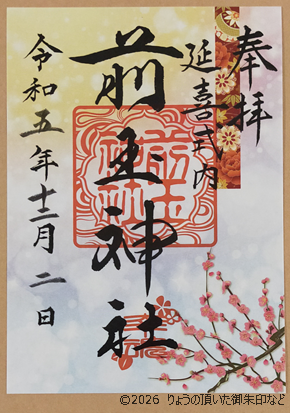 奉拝
延喜式内
前玉神社
令和五年十二月二日
前玉神社
©2026 りょうの頂いた御朱印など